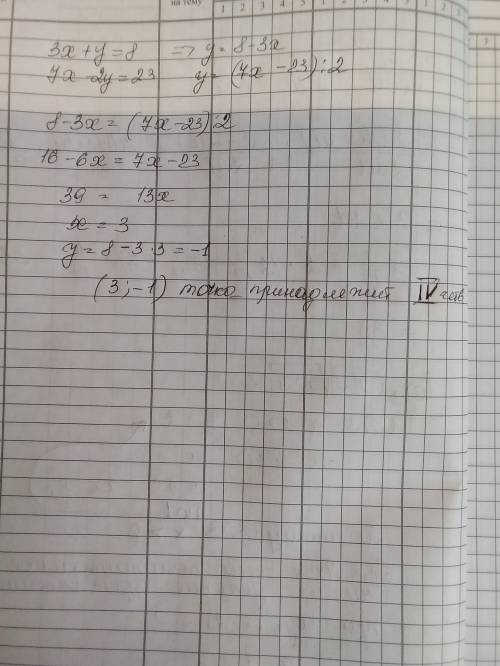 на тему
1 2 3 4 5 1 2 3 4 5 1 2
3x + y = 8 => y = 8 - 3x
7x - 2y = 23 y = (7x - 23) : 2
8 - 3x = (7x - 23) : 2
16 - 6x = 7x - 23
39 = 13x
x = 3
y = 8 - 3 · 3 = -1
(3; -1) точка принадлежит IV четв